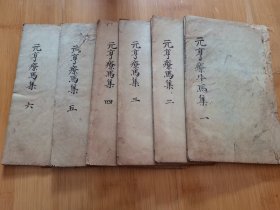 元亨療馬集 六
元亨療馬集 五
元亨療馬集 四
元亨療馬集 三
元亨療馬集 二
元亨療牛馬集 一